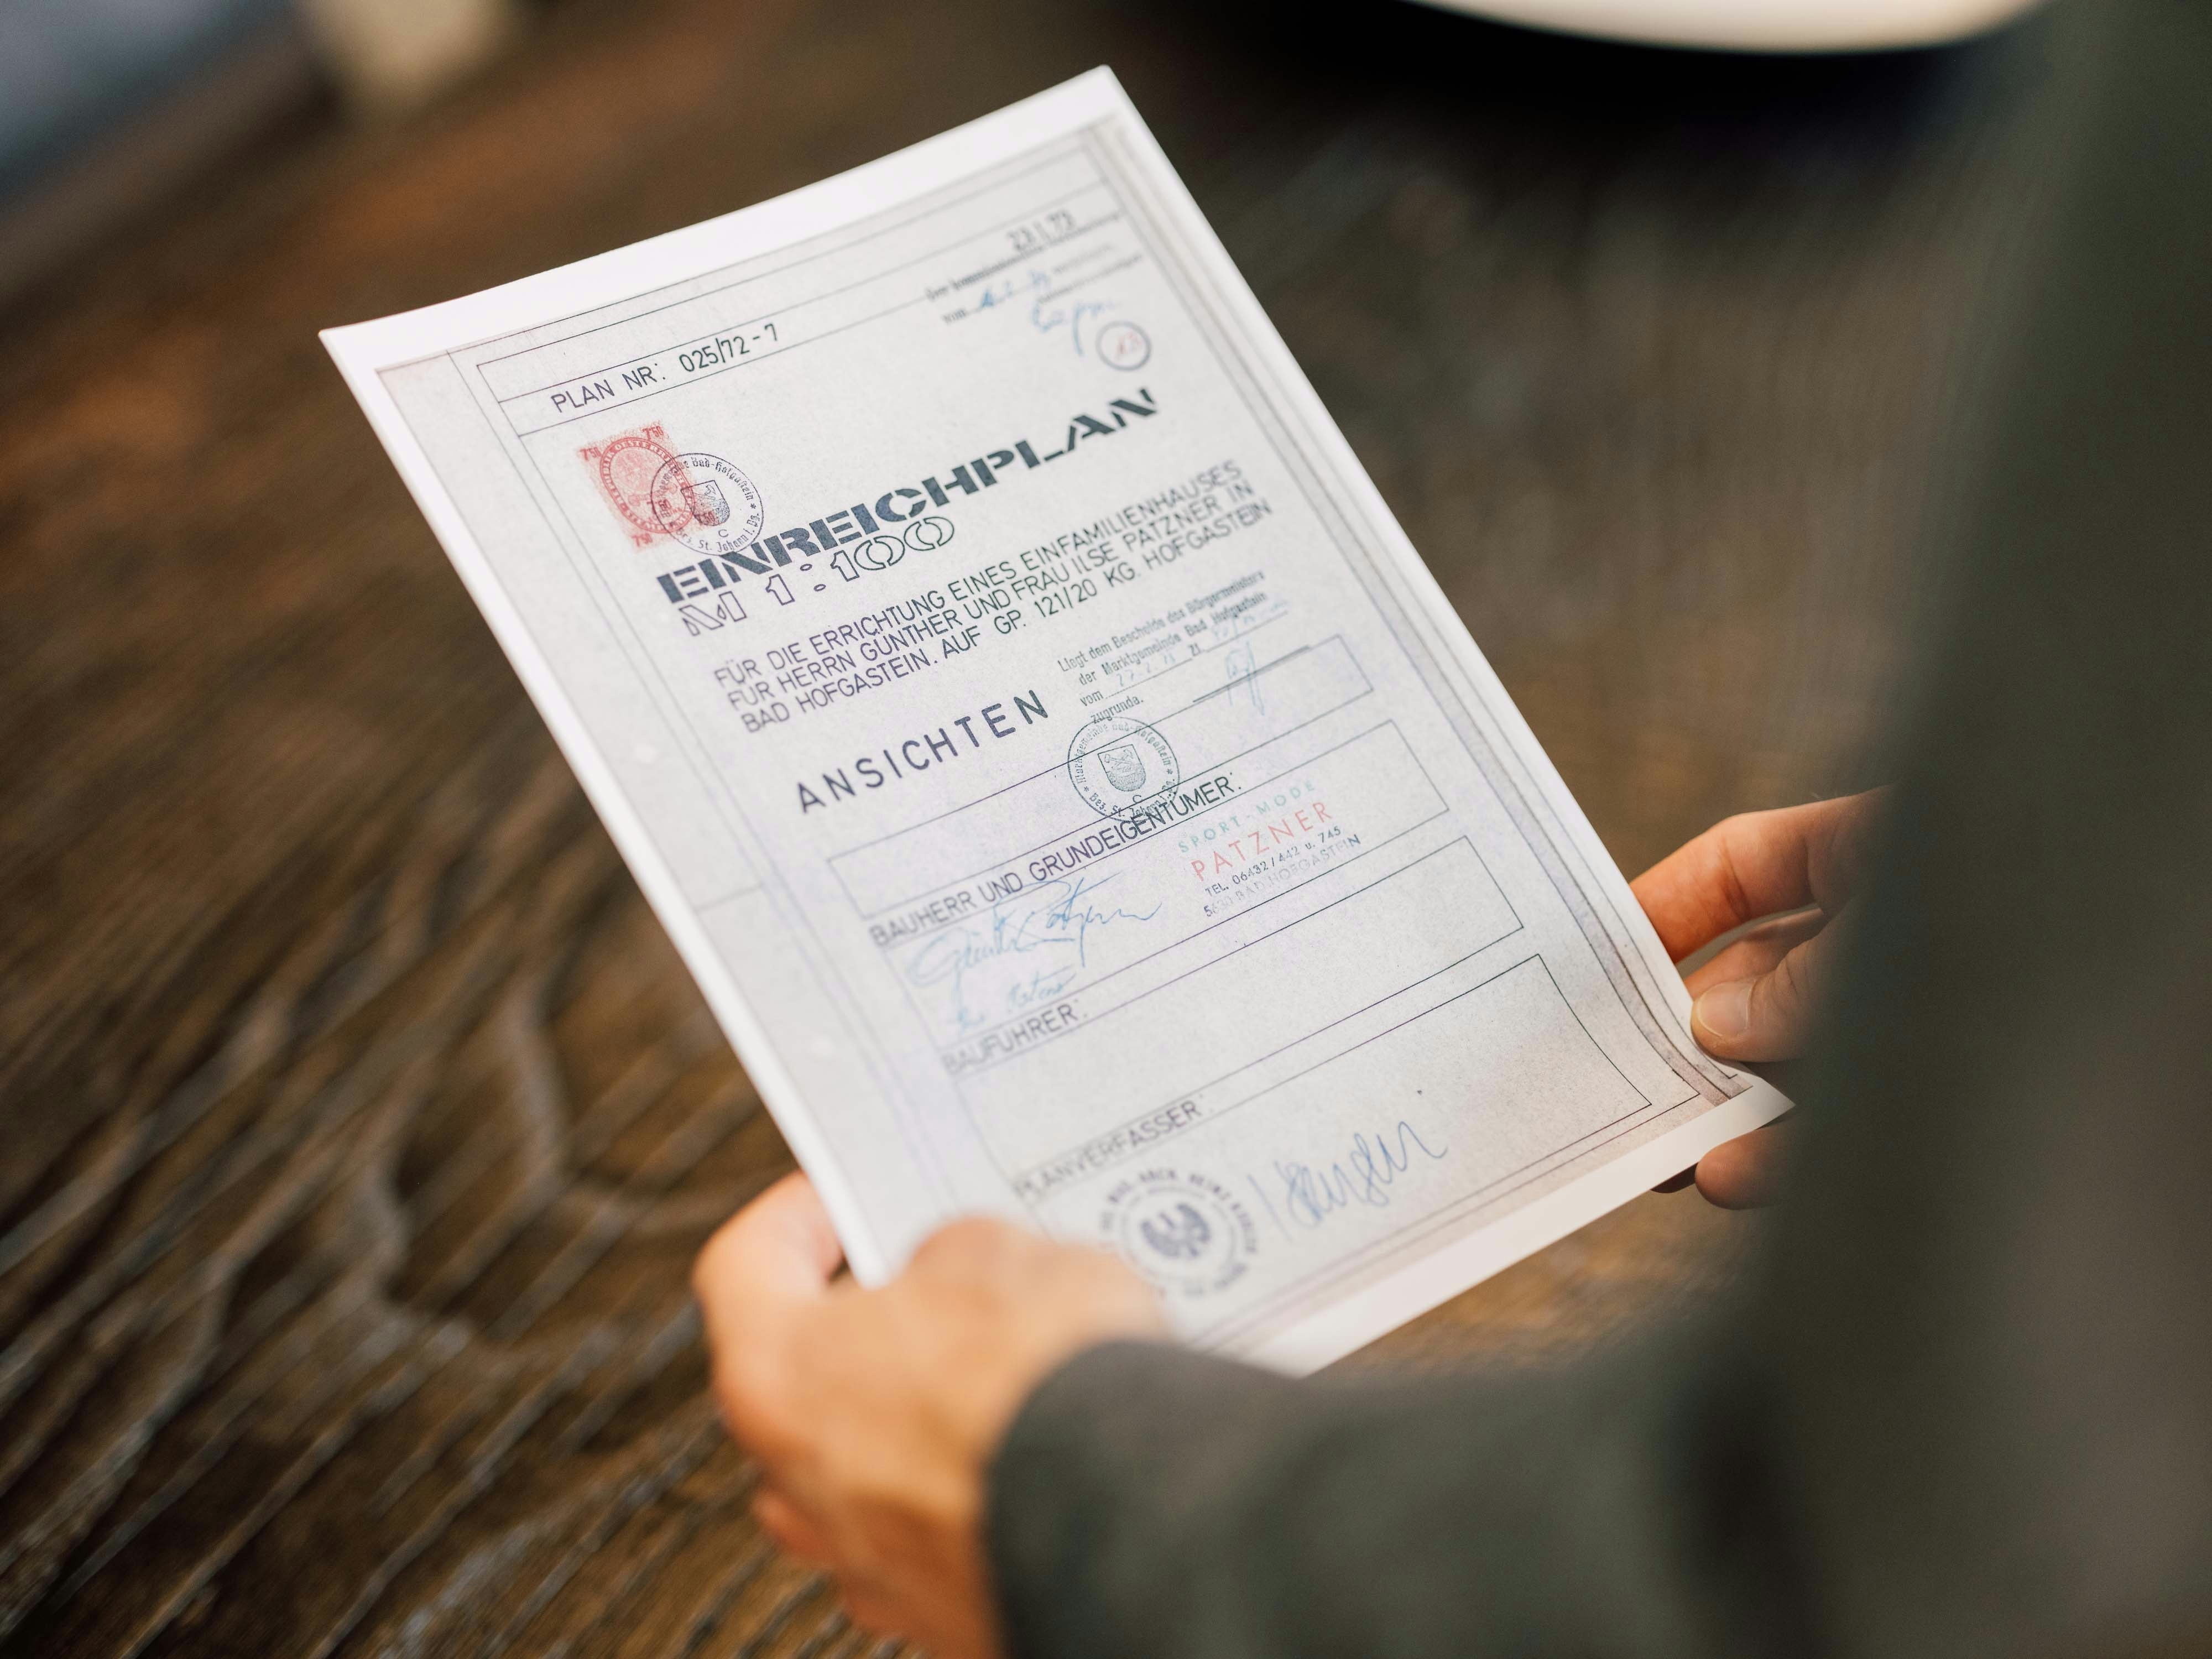 23 | 73
PLAN NR: 025/72-7
vom
750
750
750
EINREICHPLAN
M 1:100
FÜR DIE ERRICHTUNG EINES EINFAMILIENHAUSES
FÜR HERRN GÜNTHER UND FRAU ILSE PATZNER IN
BAD HOFGASTEIN. AUF GP. 121/20 KG. HOFGASTEIN
Liegt dem Bescheide des Bürgermeisters
der Marktgemeinde Bad Hofgastein
vom Zl.
zugrunde.
ANSICHTEN
Marktgemeinde Bad-Hofgastein * Bez. St. Johann i. Pg. *
C
BAUHERR UND GRUNDEIGENTÜMER:
SPORT-MODE
PATZNER
TEL. 06432/442 u. 745
5630 BAD HOFGASTEIN
BAUFÜHRER:
PLANVERFASSER: